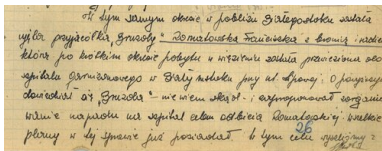 W tym samym okresie w pobliżu Białegostoku została
ujęta przyjaciółka "Gruzoły" Romatowska Franciszka z bronią i
która po krótkim okresie pobytu w więzieniu została przewieziona do
szpitala w Białymstoku przy ul. O powyższym
dowiedział się "Gruzoła" - nie wiem skąd - i zaproponował zorgani-
zowanie napadu na szpital celem odbicia Romatowskiej wszelkie
plany w tej sprawie już posiadał. W tym celu
26